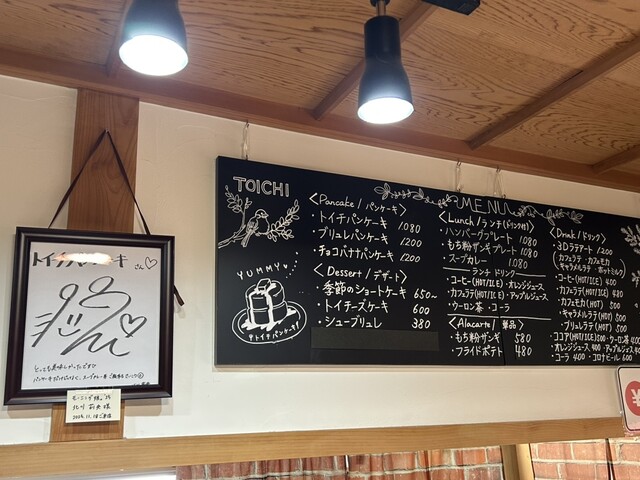 トイチパンケーキ
さん♡
とっても美味しかったです♡
TOICHI
YUMMY♥
トイチパンケーキ
MENU
<Pancake / パンケーキ>
・トイチパンケーキ 1080
・ブリュレパンケーキ 1200
・チョコバナナパンケーキ 1200
<Dessert / デザート>
・季節のショートケーキ 650~
・トイチーズケーキ 600
・シューブリュレ 380
<Lunch / ランチ(ドリンク付)>
・ハンバーグプレート 1080
・もち粉ザンギプレート 1080
・スープカレー 1080
ランチ ドリンク
・コーヒー(HOT/ICE)・オレンジジュース
・カフェラテ(HOT/ICE)・アップルジュース
・ウーロン茶・コーラ
<Alacarte / 単品>
・もち粉ザンギ 580
・フライドポテト 480
<Drink / ドリンク>
・3Dラテアート 1200
(カフェラテ・カフェモカ
キャラメルラテ・ホットミルク)
・コーヒー(HOT/ICE) 400
・カフェラテ(HOT/ICE) 480
・カフェモカ(HOT) 500
・キャラメルラテ(HOT) 500
・ブリュレラテ(HOT) 500
・ココア(HOT/ICE) 500・ウーロン茶 400
・オレンジジュース 400・アップルジュース 400
・コーラ 400・コロナビール 600